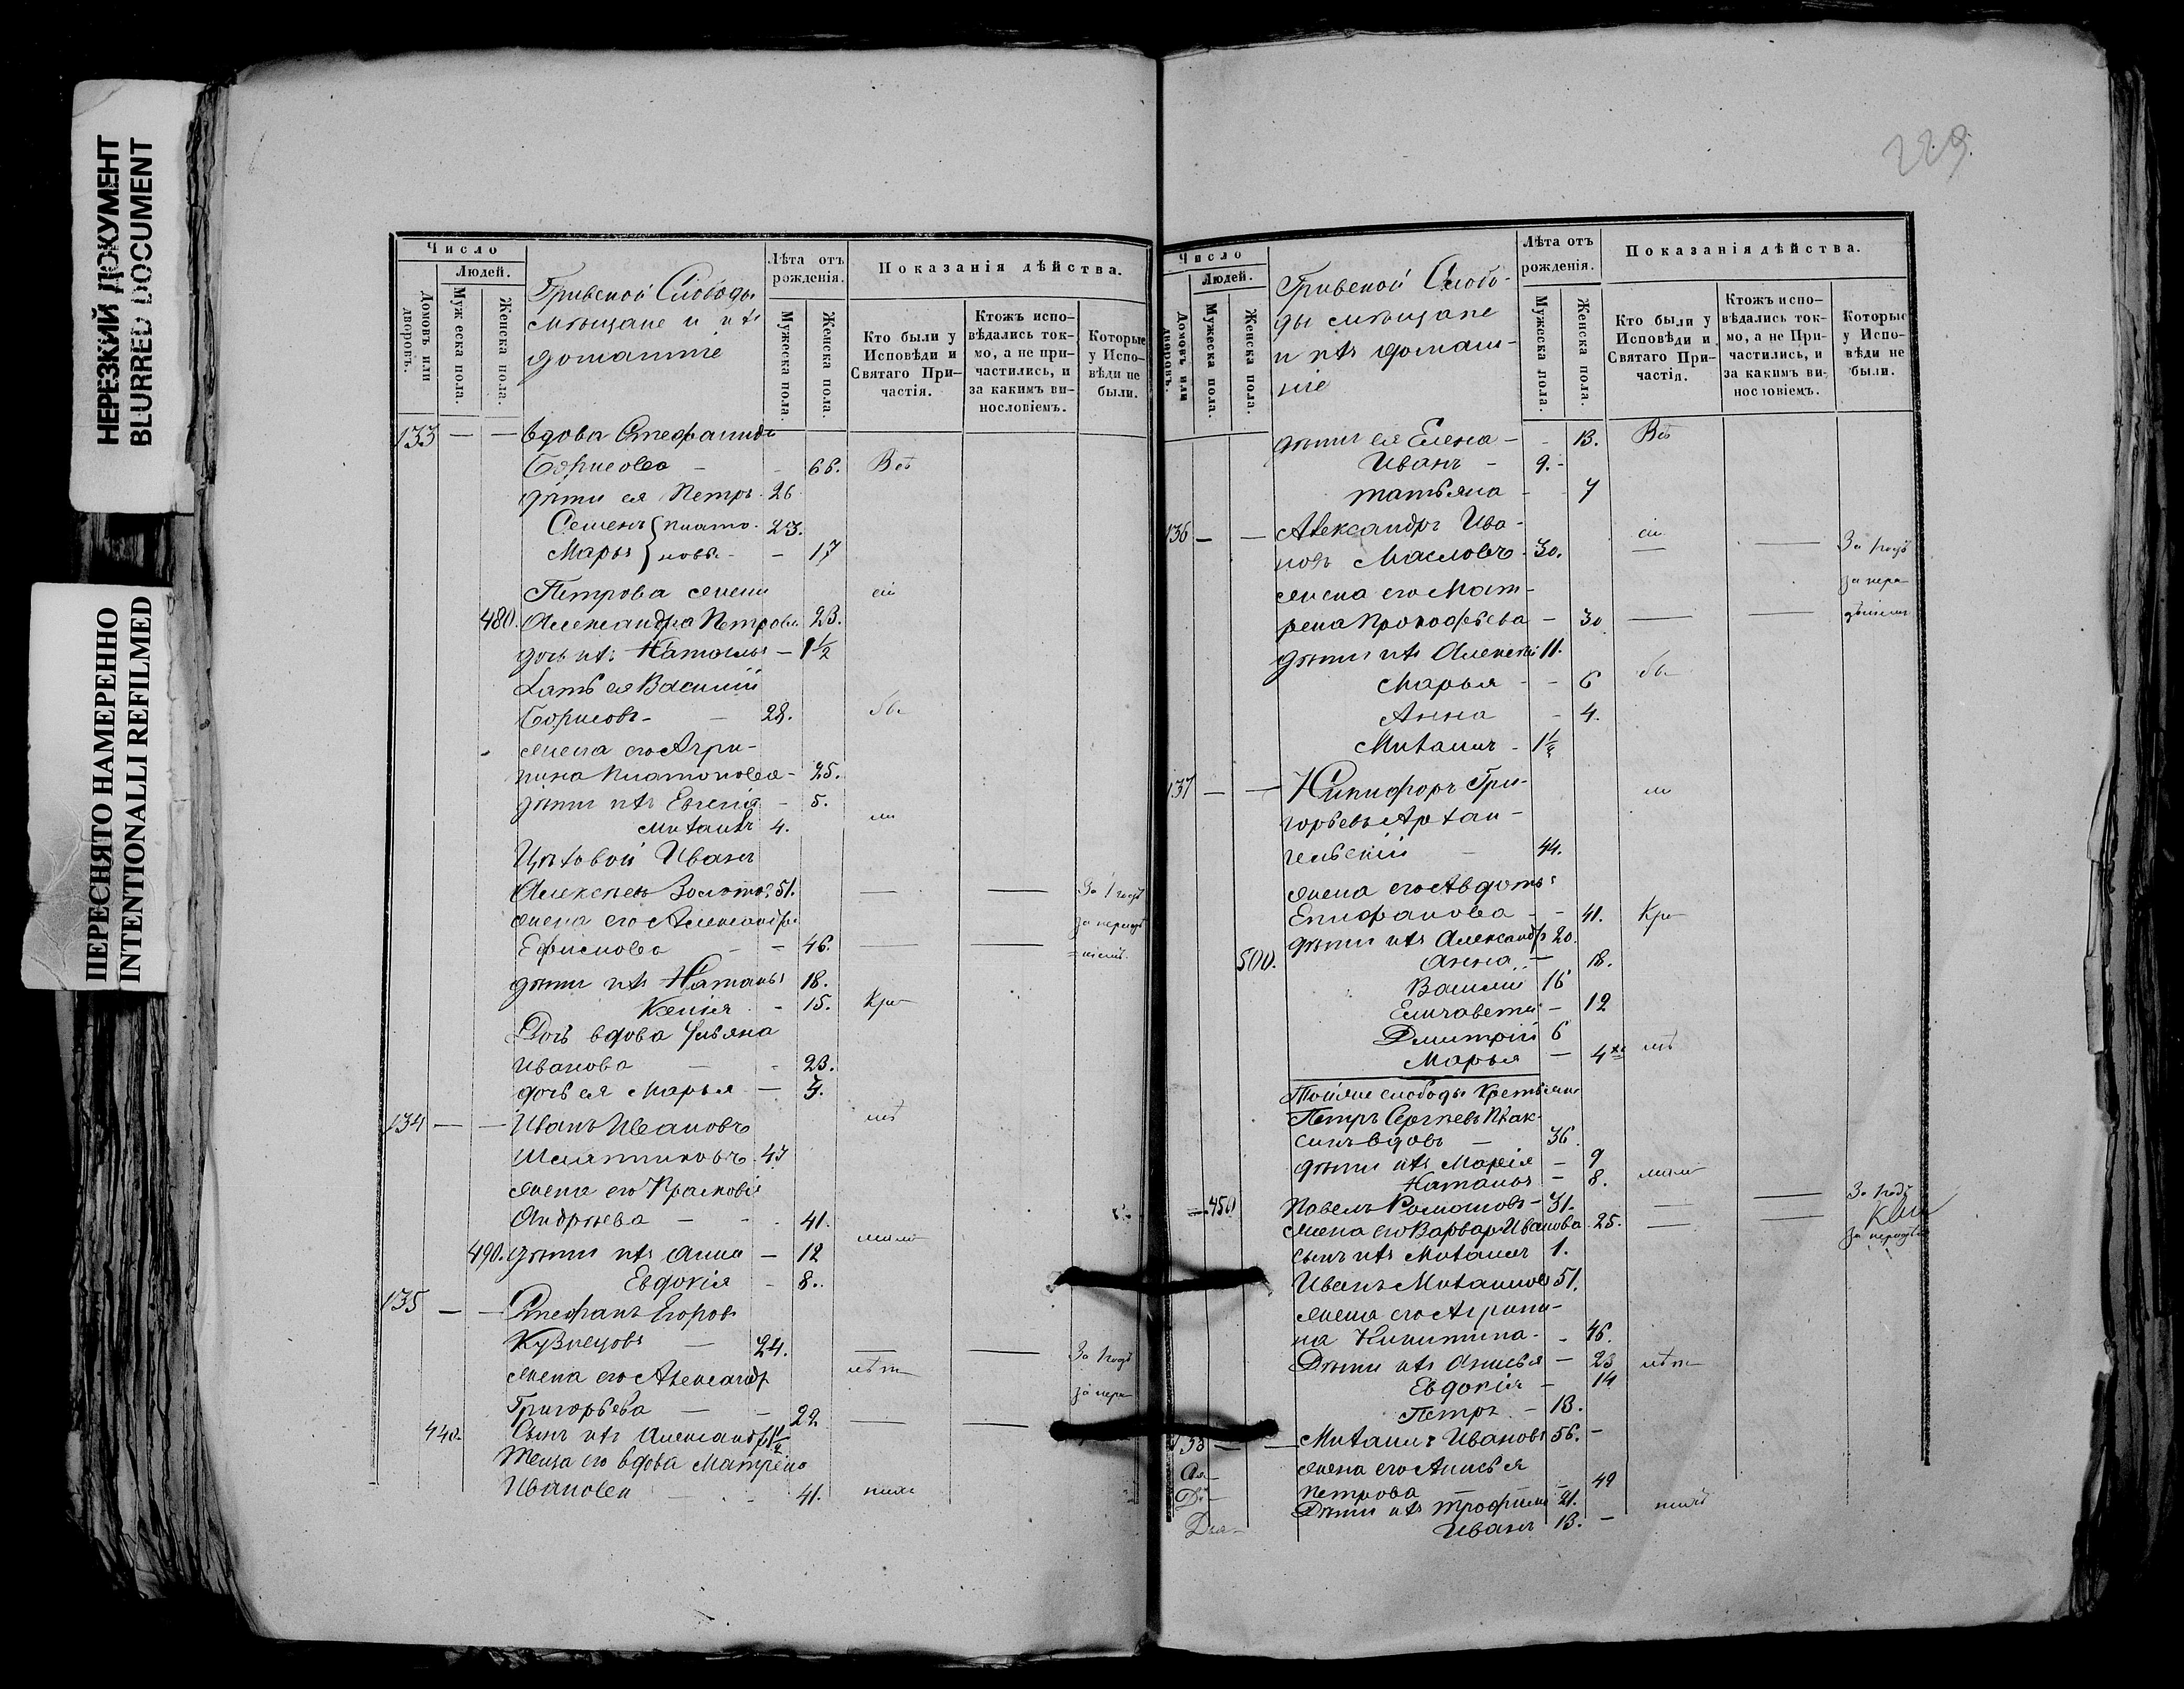 НЕРЕЗКИЙ ДОКУМЕНТ
BLURRED DOCUMENT
ПЕРЕСНЯТО НАМЕРЕННО
INTENTIONALLI REFILMED
Число
Людей.
Домовъ или дворовъ.
Мужеска пола.
Женска пола.
Гривской Слободы
мѣщане и ихъ
домашніе
Лѣта отъ рожденія.
Мужеска пола.
Женска пола.
Показанія дѣйства.
Кто были у Исповѣди и Святаго При-частія.
Ктожъ испо-вѣдались ток-мо, а не при-частились, и за какимъ ви-нословіемъ.
Которые у Испо-вѣди не были.
133 — — вдова Стефанида
Борисова - - 66. Всѣ
дѣти ея Петръ 26
Семенъ Плато- 23.
Марья новы - - 17
Петрова жена сіи
480. Александра Петрова 23.
дочь ихъ Наталья - 1½
Зять ея Василій
Борисовъ - 28. бы
жена его Агри-
пина Платонова - 25.
дѣти ихъ Евгенія - 5.
Михаилъ 4. ли
Цѣховой Иванъ
Алексѣевъ Золотовъ 51. — — За 1 годъ
жена его Александра
Ефимова - - 46. — —
дѣти ихъ Наталья 18.
Ксенія - 15. Кро
Дочь вдова Ульяна
Иванова - - 23.
дочь ея Марья -
134 — — Иванъ Ивановъ
47
жена его Прасковія
Андреева - - 41.
490. дѣти ихъ Анна - 12
Евдокія - 8.
135 — — Стефанъ Егоровъ
Кузнецовъ - 24. — — За 1 годъ
жена его Александра лѣт
Григорьева - - 22 — —
440. Сынъ ихъ Александръ 1½
Теща его вдова Матрена
Иванова - - 41.
229.
Число
Людей.
Домовъ или дворовъ.
Мужеска пола.
Женска пола.
Гривской Слобо-
ды мѣщане
и ихъ домаш-
ніе
Лѣта отъ рожденія.
Мужеска пола.
Женска пола.
Показанія дѣйства.
Кто были у Исповѣди и Святаго При-частія.
Ктожъ испо-вѣдались ток-мо, а не При-частились, и за какимъ ви-нословіемъ.
Которые у Испо-вѣди не были.
дѣти ея Елена - - 13. Всѣ
Иванъ - 9. -
Татьяна - - 7
136 — — Александръ Ива- сіи
новъ Масловъ - 30. — — За 1 годъ
жена его Мат- за нера-
рена Прокофьева - 30 — — дѣніемъ
дѣти ихъ Алексѣй 11.
Марья - - 6 бы
Анна - 4.
Михаилъ - 1½
137 — — Никифоръ Гри- ли
горьевъ Архан-
гельскій - 44.
жена его Авдотья
Епифанова - - 41. Кро
дѣти ихъ Александръ 20.
500. Анна - 18.
Василій 16
Елизавета - 12
Дмитрій 6
Марья - 4хъ
Тойже слободы Крестьяне
Петръ Сергѣевъ Плак-
синъ вдовъ - 36.
дѣти ихъ Марія - 9
Наталья - 8.
450 Павелъ Романовъ - 31. — — За 1 годъ
жена его Варвара Иванова 25. — —
сынъ ихъ Михаилъ 1.
Иванъ Михаиловъ 51.
жена его Агрипи-
на Никитина - - 46.
Дѣти ихъ Анисья - 23 лѣт
Евдокія - 14
Петръ - 13.
138 — — Михаилъ Ивановъ 56. -
жена его Анисья
Петрова - - 49
Дѣти ихъ Трофимъ 21.
Иванъ 13. -